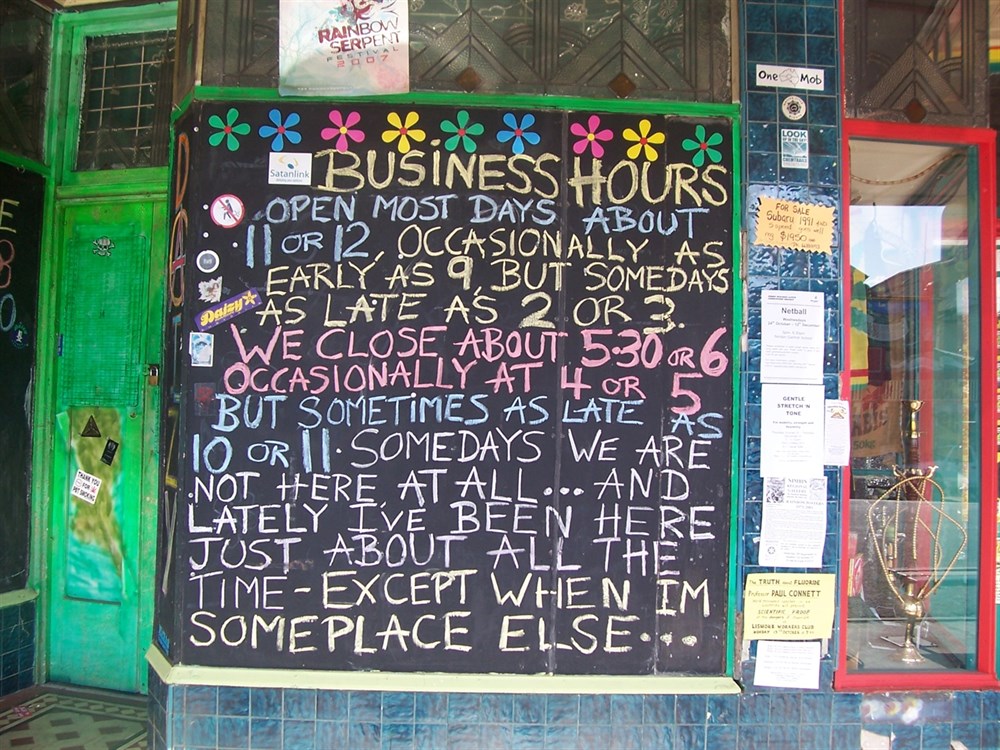 RAINBOW
SERPENT
FESTIVAL
2007
Satanlink
BUSINESS HOURS
OPEN MOST DAYS ABOUT
11 OR 12, OCCASIONALLY AS
EARLY AS 9, BUT SOMEDAYS
AS LATE AS 2 OR 3.
WE CLOSE ABOUT 5:30 OR 6
OCCASIONALLY AT 4 OR 5
BUT SOMETIMES AS LATE AS
10 OR 11. SOMEDAYS WE ARE
NOT HERE AT ALL... AND
LATELY I'VE BEEN HERE
JUST ABOUT ALL THE
TIME - EXCEPT WHEN IM
SOMEPLACE ELSE...
Daizy
THANK YOU
FOR
POT SMOKING
One Mob
LOOK
FOR SALE
Subaru 1991
$1950
Netball
GENTLE
STRETCH 'N
TONE
THE TRUTH and FLUORIDE
Professor PAUL CONNETT
SCIENTIFIC PROOF
LISMORE WORKERS CLUB